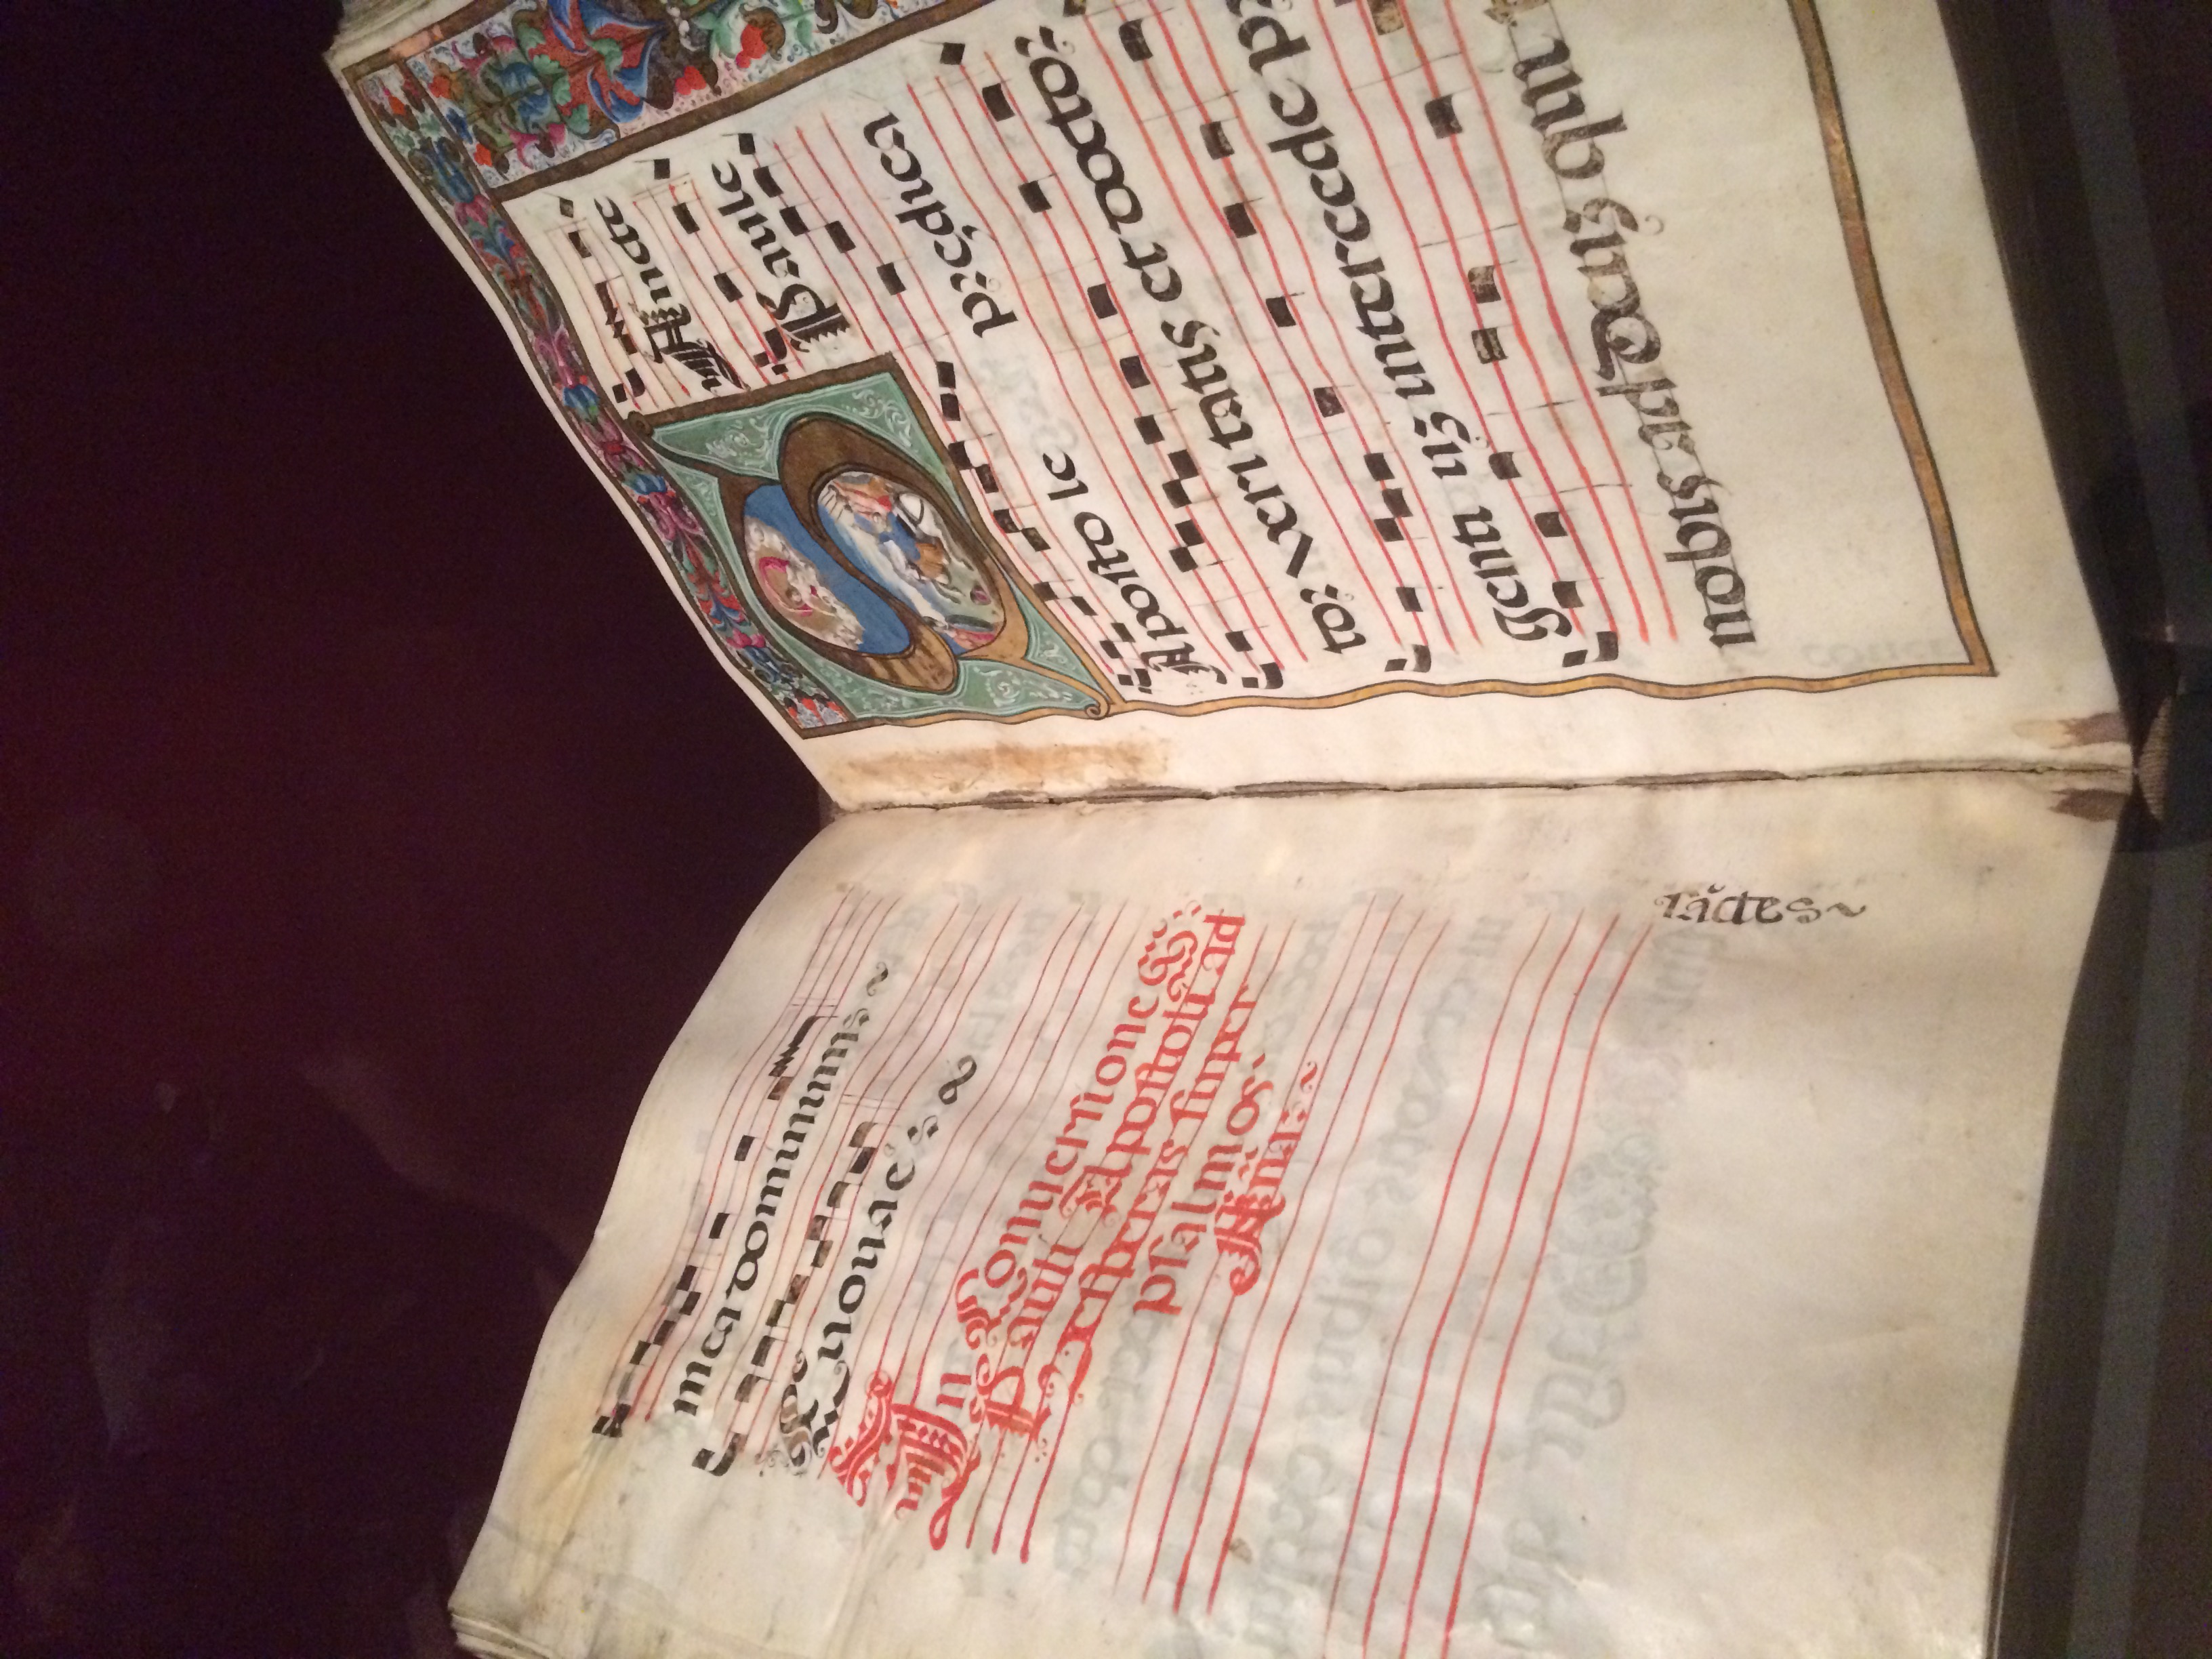 mea dominum
Euouae
In Conuersione S.
Pauli Apostoli ad
Vesperas super
psalmos.
Aña:
SAncte
Paule
Aposto le prędica
tor veri tatis et doctor
genti uz intercede pr
nobis ad deuz qui t